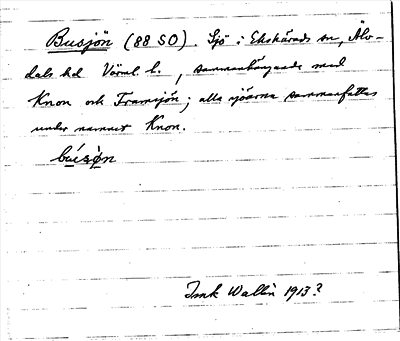 Busjön (88 SO). Sjö i Ekshärads sn, Älv-
dals hd Värml. l., sammanhängande med
Knon och Framsjön; alla sjöarna sammanfattas
under namnet Knon.
búsjøn
Imk Wallin 1913?